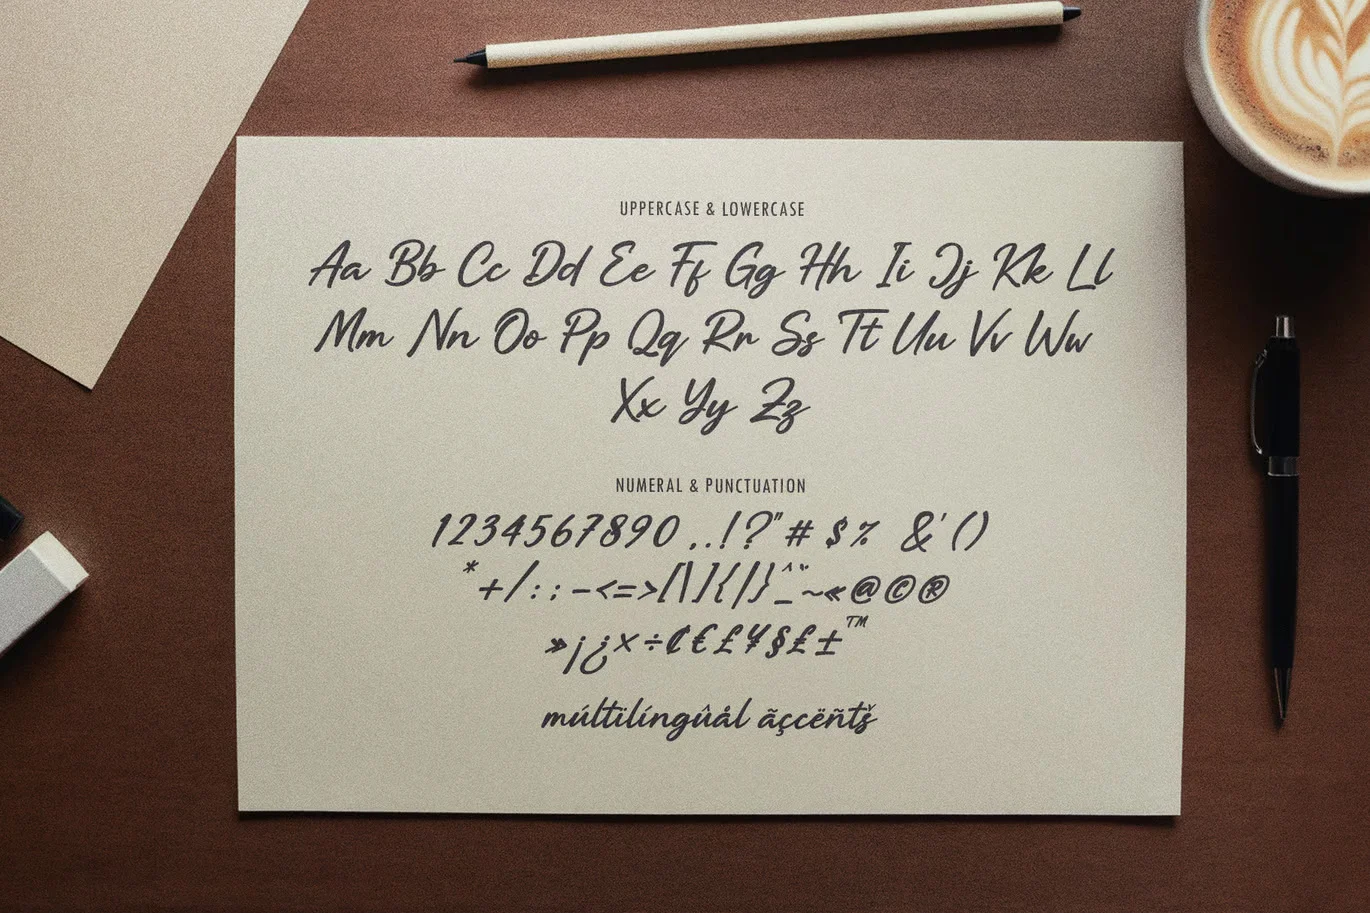 UPPERCASE & LOWERCASE
Aa Bb Cc Dd Ee Ff Gg Hh Ii Jj Kk Ll
Mm Nn Oo Pp Qq Rr Ss Tt Uu Vv Ww
Xx Yy Zz
NUMERAL & PUNCTUATION
1234567890 ,.!?"# $% &'()
*+/:;-<=>[\]{|}^_¨~«@©®
»¡¿×÷¢€£¥§£±™
múltilíngûål ãçcëñtš